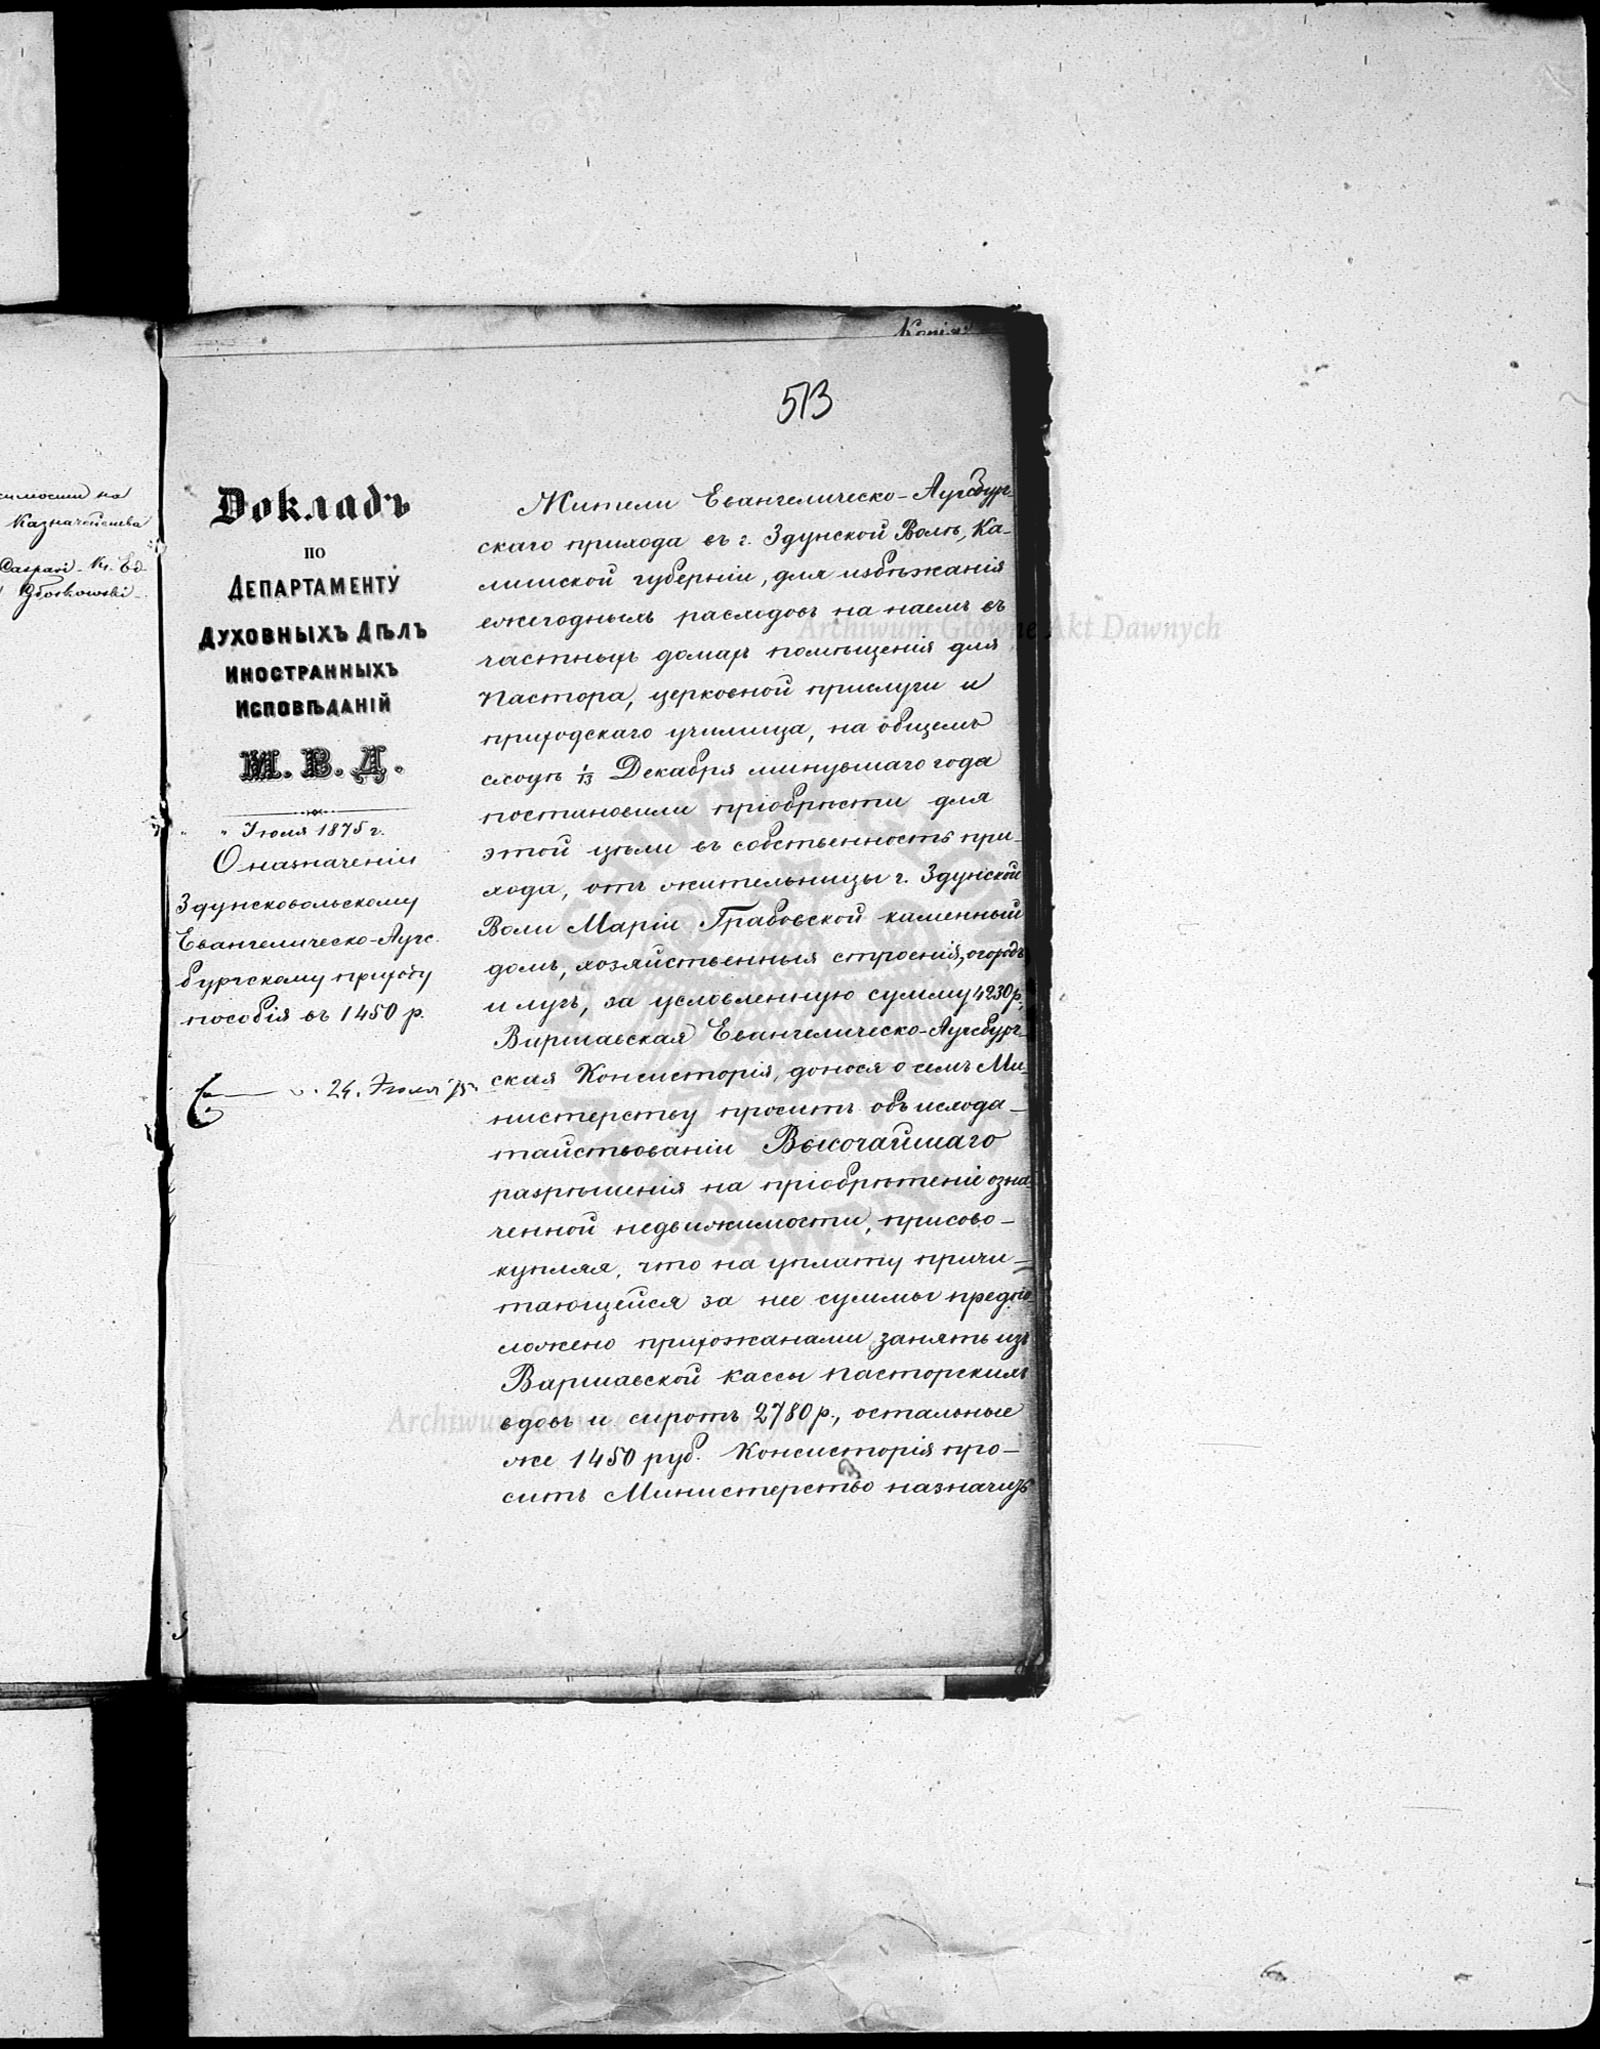 Копія
513
симости на
Казначейства
Caspari. Kr. Ed.
Głoskowski
Докладъ
по
Департаменту
Духовныхъ Дѣлъ
Иностранныхъ
Исповѣданій
М. В. Д.
" " Іюля 1875 г.
О назначеніи
Здунсковольскому
Евангелическо-Аугс-
бургскому приходу
пособія въ 1450 р.
24. Іюля 75.
Жители Евангелическо-Аугсбург-
скаго прихода въ г. Здунской Волѣ, Ка-
лишской губерніи, для избѣжанія
ежегодныхъ расходовъ на наемъ въ
частныхъ домахъ помѣщенія для
Пастора, церковной прислуги и
приходскаго училища, на общемъ
сходѣ 1/13 Декабря минувшаго года
постановили пріобрѣсти для
этой цѣли въ собственность при-
хода, отъ жительницы г. Здунской
Воли Маріи Грабовской каменный
домъ, хозяйственныя строенія, огородъ
и лугъ, за условленную сумму 4230 р.
Варшавская Евангелическо-Аугсбург-
ская Консисторія, донося о семъ Ми-
нистерству проситъ объ исхода-
тайствованіи Высочайшаго
разрѣшенія на пріобрѣтеніе озна-
ченной недвижимости, присово-
купляя, что на уплату причи-
тающейся за нее суммы предпо-
ложено прихожанами занять изъ
Варшавской кассы пасторскихъ
вдовъ и сиротъ 2780 р., остальные
же 1450 руб. Консисторія про-
ситъ Министерство назначить
Archiwum Główne Akt Dawnych
Archiwum Główne Akt Dawnych